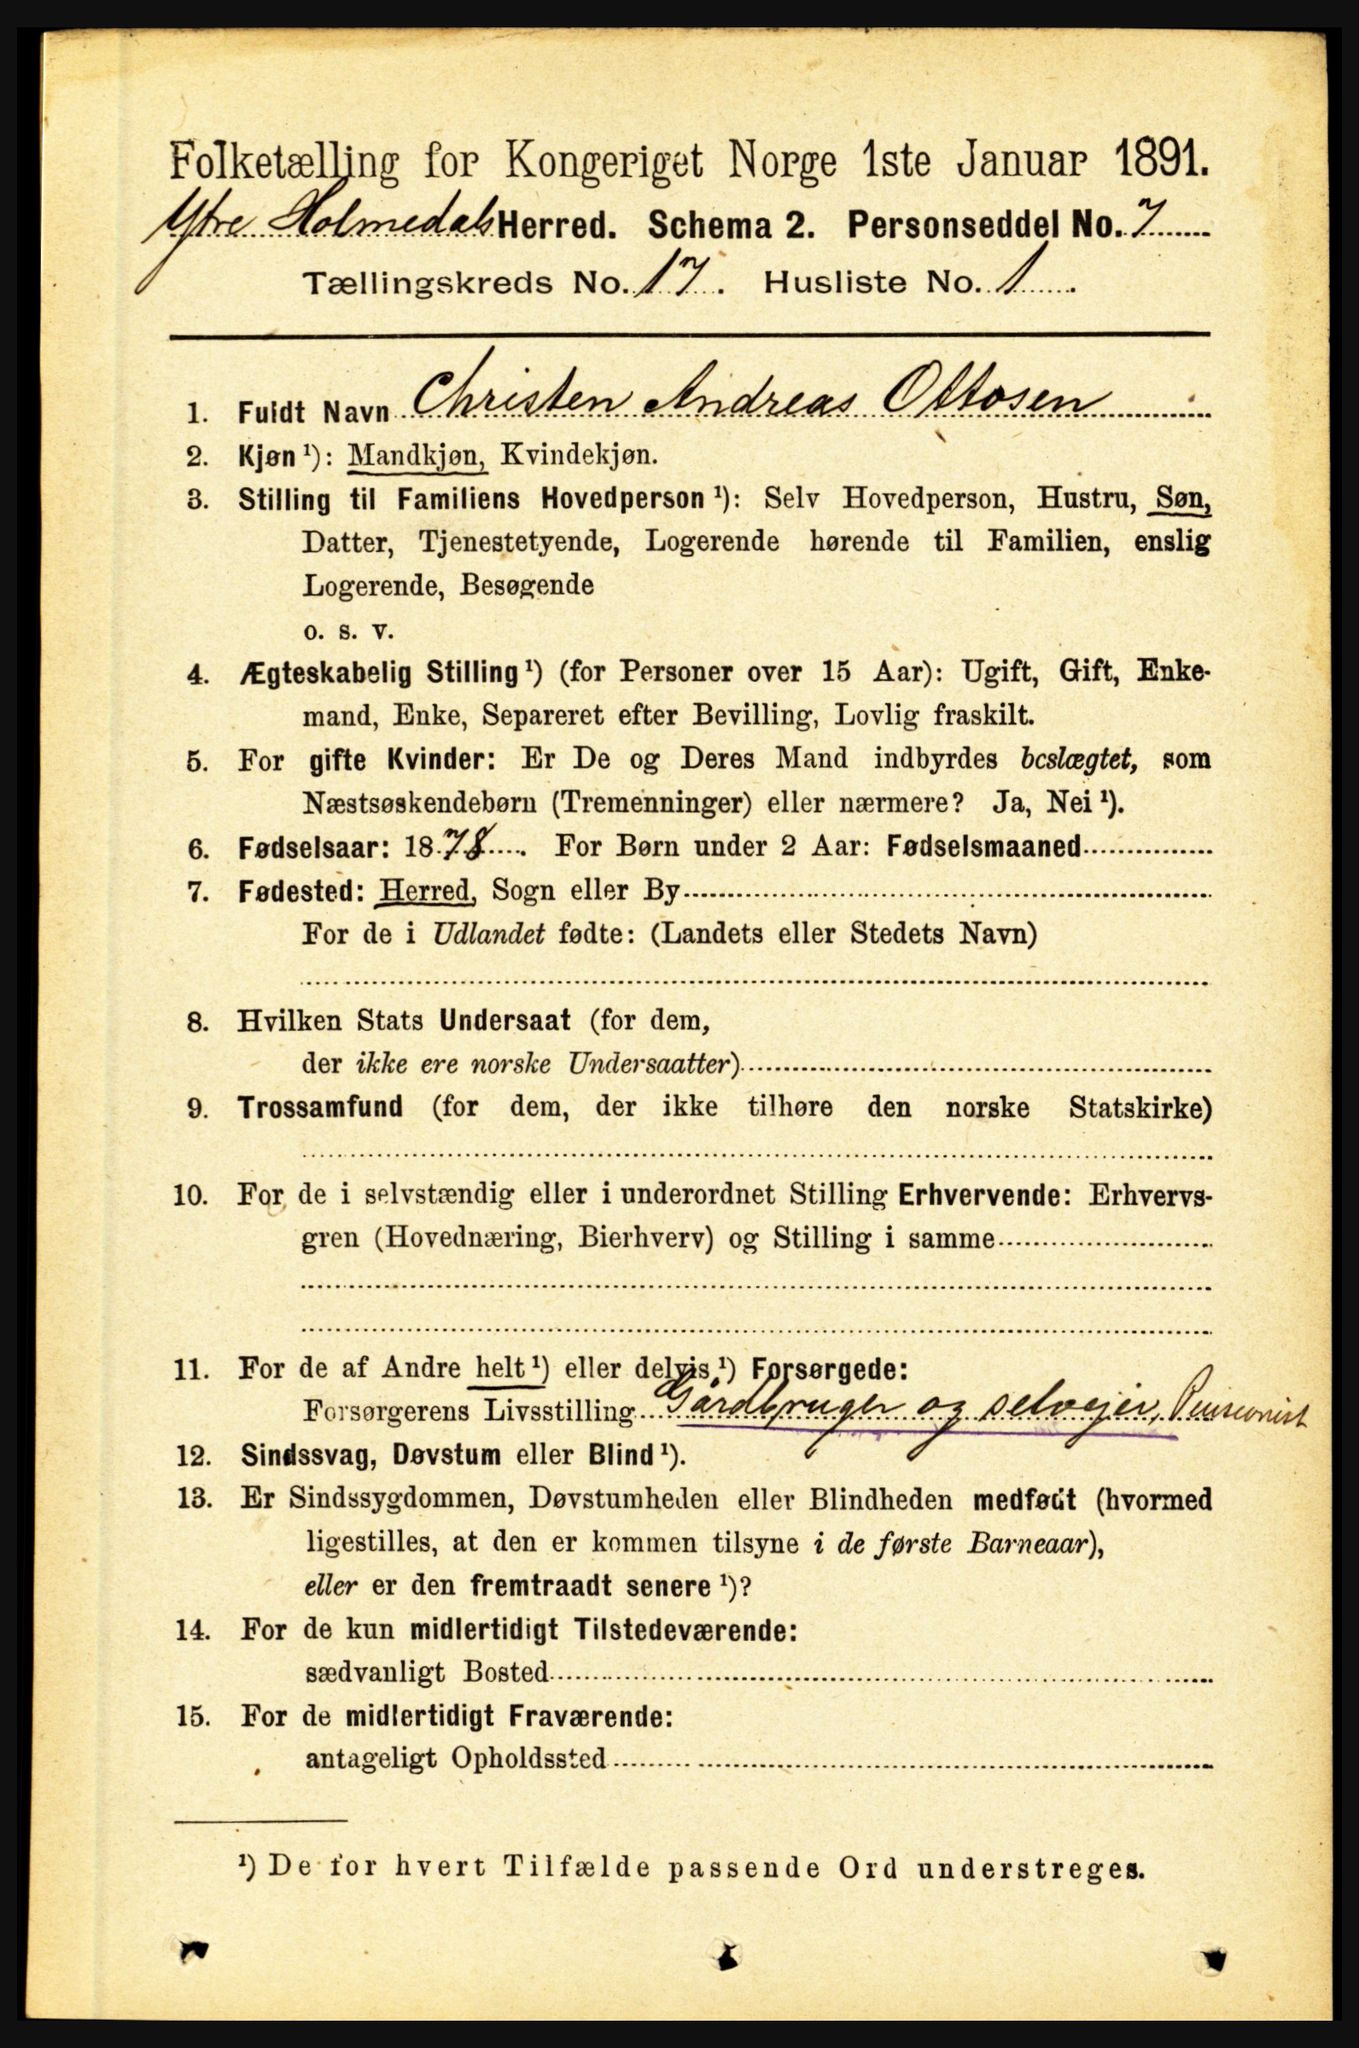 Folketælling for Kongeriget Norge 1ste Januar 1891.
Ytre Holmedals Herred. Schema 2. Personseddel No. 7
Tællingskreds No. 17. Husliste No. 1.
1. Fuldt Navn Christen Andreas Ottosen
2. Kjøn ¹): Mandkjøn, Kvindekjøn.
3. Stilling til Familiens Hovedperson ¹): Selv Hovedperson, Hustru, Søn,
Datter, Tjenestetyende, Logerende hørende til Familien, enslig
Logerende, Besøgende
o. s. v.
4. Ægteskabelig Stilling ¹) (for Personer over 15 Aar): Ugift, Gift, Enke-
mand, Enke, Separeret efter Bevilling, Lovlig fraskilt.
5. For gifte Kvinder: Er De og Deres Mand indbyrdes beslægtet, som
Næstsøskendebørn (Tremenninger) eller nærmere? Ja, Nei ¹).
6. Fødselsaar: 1878. For Børn under 2 Aar: Fødselsmaaned
7. Fødested: Herred, Sogn eller By
For de i Udlandet fødte: (Landets eller Stedets Navn)
8. Hvilken Stats Undersaat (for dem,
der ikke ere norske Undersaatter)
9. Trossamfund (for dem, der ikke tilhøre den norske Statskirke)
10. For de i selvstændig eller i underordnet Stilling Erhvervende: Erhvervs-
gren (Hovednæring, Bierhverv) og Stilling i samme
11. For de af Andre helt ¹) eller delvis ¹) Forsørgede:
Forsørgerens Livsstilling Gårdbruger og selvejer, Pensionist
12. Sindssvag, Døvstum eller Blind ¹).
13. Er Sindssygdommen, Døvstumheden eller Blindheden medfødt (hvormed
ligestilles, at den er kommen tilsyne i de første Barneaar),
eller er den fremtraadt senere ¹)?
14. For de kun midlertidigt Tilstedeværende:
sædvanligt Bosted
15. For de midlertidigt Fraværende:
antageligt Opholdssted
¹) De for hvert Tilfælde passende Ord understreges.